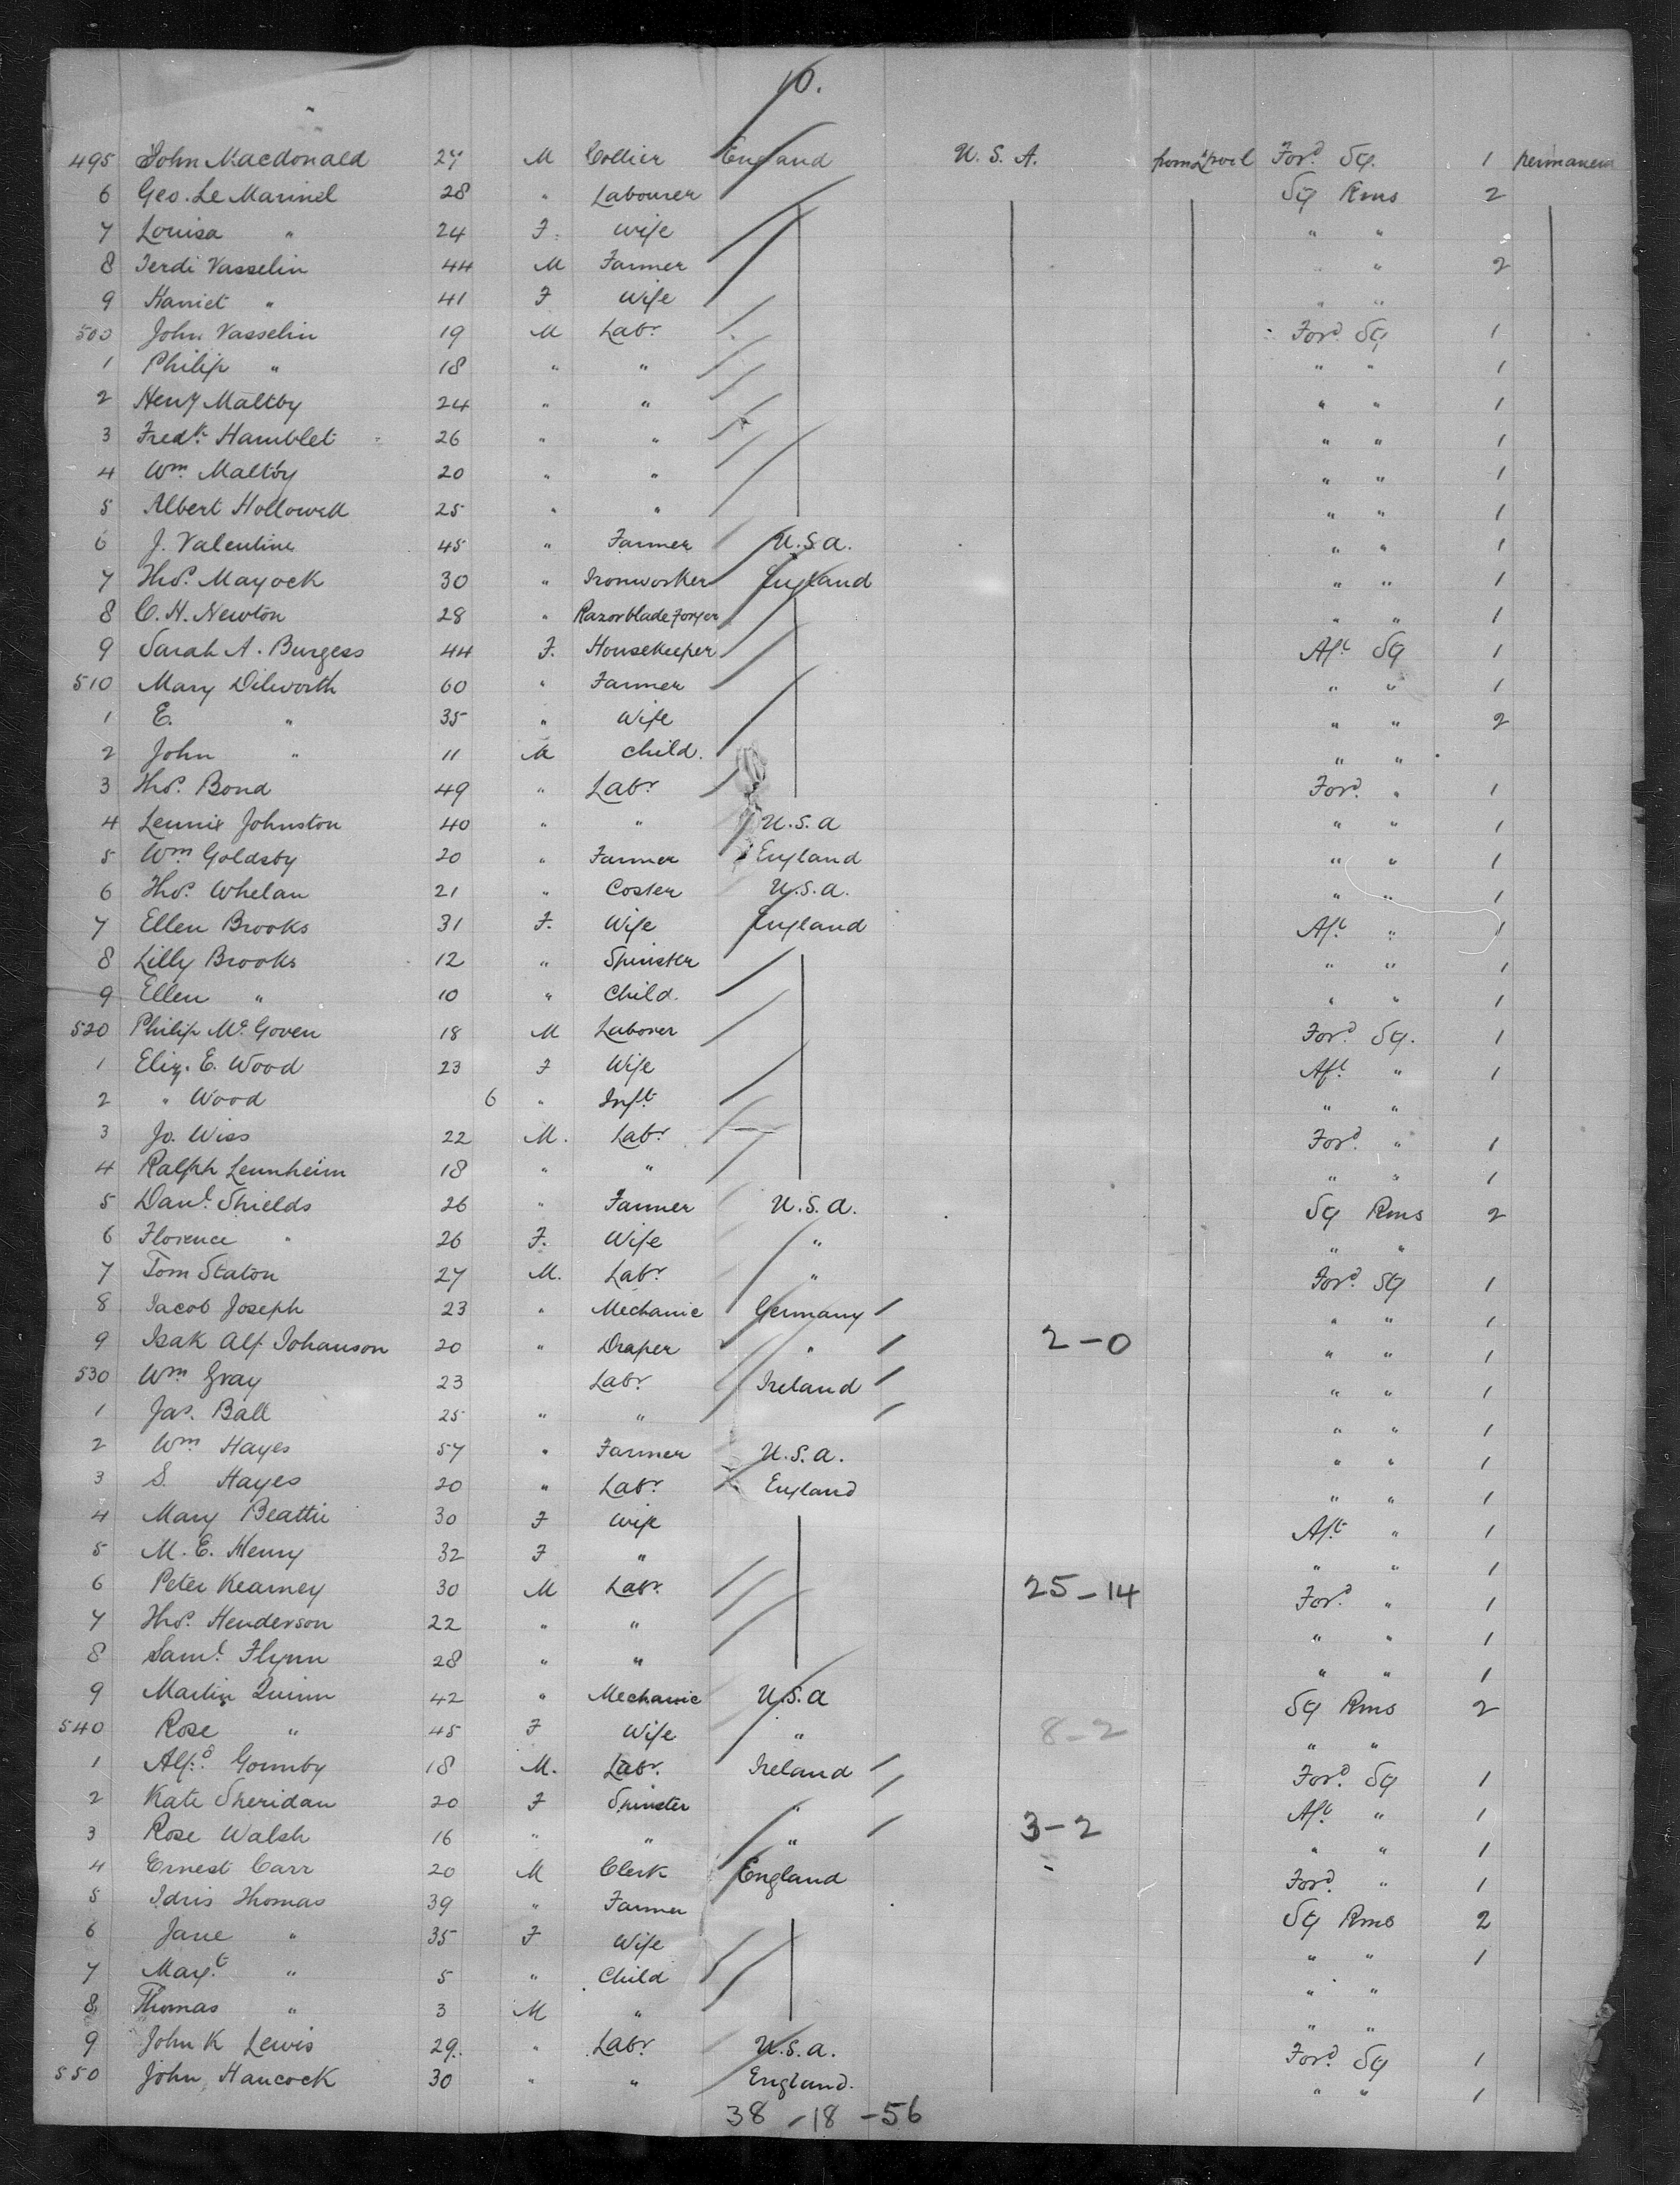 10.
495 John Macdonald 27 M Collier England U. S. A. from L'pool Ford Sg. 1 permanent
6 Geo. Le Marinel 28 " Labourer Sg Rms 2
7 Louisa " 24 F. wife " "
8 Ferdi Vasselin 44 M Farmer " " 2
9 Harriet " 41 F Wife " "
500 John Vasselin 19 M Labr. Ford Sg 1
1 Philip " 18 " " " " 1
2 Heny Maltby 24 " " " " 1
3 Fredk. Hamblet 26 " " " " 1
4 Wm Maltby 20 " " " " 1
5 Albert Hollowell 25 " " " " 1
6 J. Valentine 45 " Farmer U.S.A. " " 1
7 Thos. Mayock 30 " Ironworker England " " 1
8 C. H. Newton 28 " Razorblade Forger " " 1
9 Sarah A. Burgess 44 F. Housekeeper Aft Sg 1
510 Mary Dilworth 60 " Farmer " " 1
1 E. " 35 " Wife " " 2
2 John " 11 M child. " "
3 Thos. Bond 49 " Labr. Ford. " 1
4 Lennix Johnston 40 " " U.S.A " " 1
5 Wm Goldsby 20 " Farmer England " " 1
6 Thos. Whelan 21 " Coster U.S.A. " " 1
7 Ellen Brooks 31 F. Wife England Aft " 1
8 Lilly Brooks 12 " Spinster " " 1
9 Ellen " 10 " Child. " " 1
520 Philip Mc Goven 18 M Laborer Ford. Sg. 1
1 Eliz. E. Wood 23 F Wife Aft " 1
2 " Wood 6 " Inft. " "
3 Jo. Wiss 22 M. Labr. Ford. " 1
4 Ralph Lennheim 18 " " " " 1
5 Danl. Shields 26 " Farmer U.S.A. Sg Rms 2
6 Florence " 26 F. Wife " " "
7 Tom Staton 27 M. Labr. " Ford. Sg 1
8 Jacob Joseph 23 " Mechanic Germany " " 1
9 Isak Alf. Johanson 20 " Draper " 2-0 " " 1
530 Wm Gray 23 Labr. Ireland " " 1
1 Jas. Ball 25 " " " " 1
2 Wm Hayes 57 " Farmer U.S.A. " " 1
3 S. Hayes 20 " Labr. England " " 1
4 Mary Beattie 30 F Wife Aft " 1
5 M. E. Henry 32 F " " " 1
6 Peter Kearney 30 M Labr. 25-14 Ford. " 1
7 Thos. Henderson 22 " " " " 1
8 Saml. Flynn 28 " " " " 1
9 Martin Quinn 42 " Mechanic U.S.A Sg Rms 2
540 Rose " 45 F Wife " 8-2 " "
1 Alfd. Gormby 18 M. Labr. Ireland Ford. Sg 1
2 Kate Sheridan 20 F Spinster " Aft " 1
3 Rose Walsh 16 " " " 3-2 " " 1
4 Ernest Carr 20 M Clerk England Ford. " 1
5 Idris Thomas 39 " Farmer Sg Rms 2
6 Jane " 35 F Wife " " 1
7 Magt. " 5 " Child " "
8 Thomas " 3 M " " "
9 John K Lewis 29. " Labr. U.S.A. Ford. Sg 1
550 John Hancock 30 " " England. " " 1
38-18-56